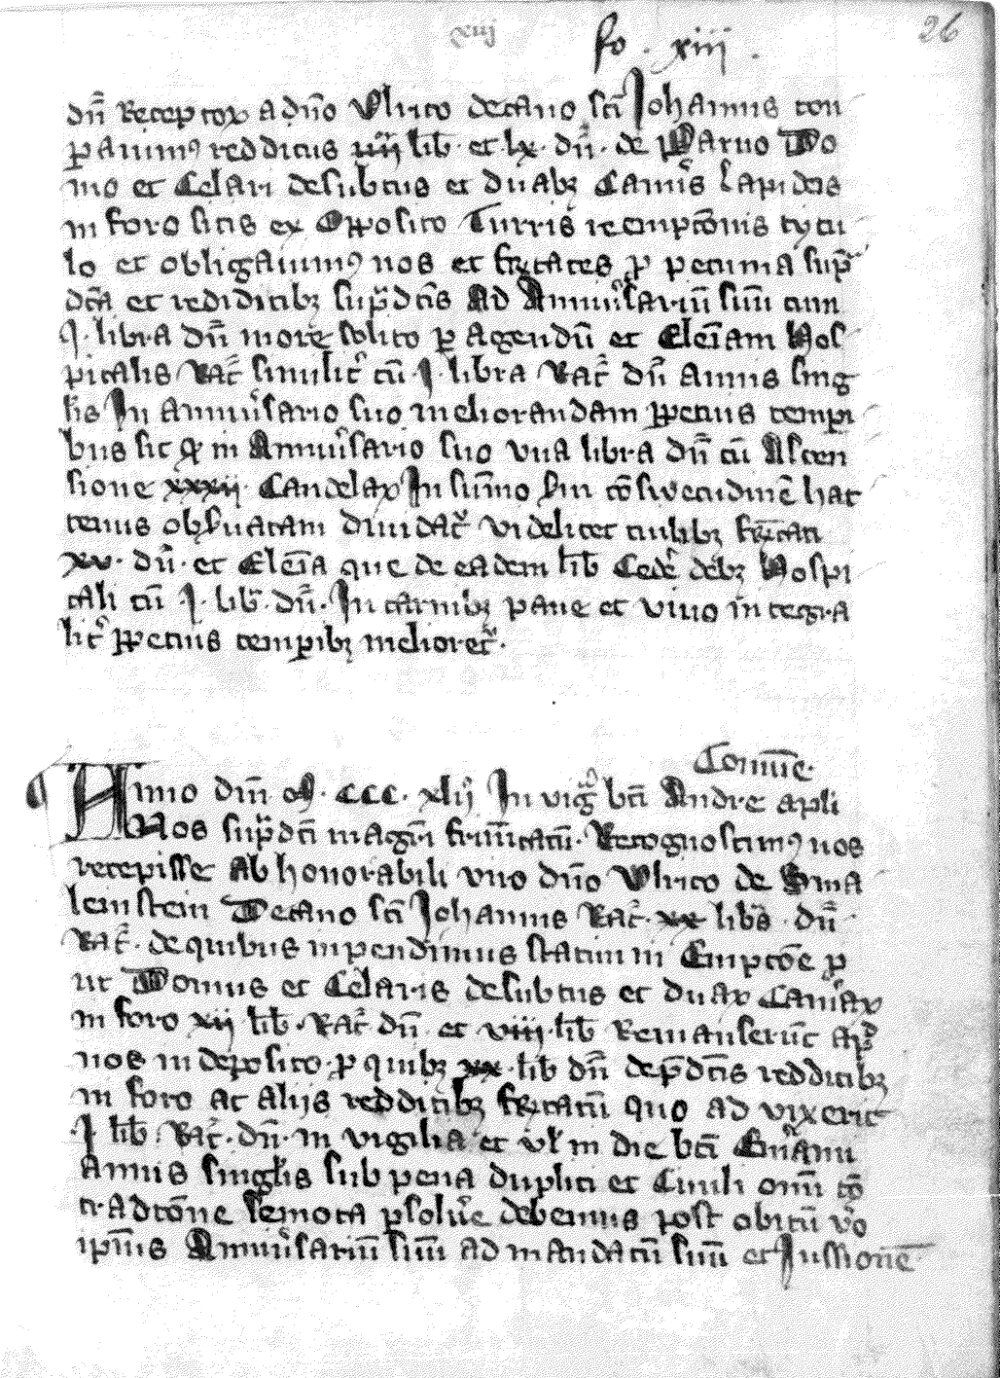 xiij
fo . xiij .
26
dn̄ Receptoꝝ a dn̄o Vlrico decano sc̄i Johannis con
ꝑauim⁹ redditus iiij lib̄ · et lx · dn̄ · de Paruo Do
mo et Celari desubtus et duabꝫ Camis Lapideis
in foro sitis ex Opposito Turris reempc̄onis tytu
lo et obligauim⁹ nos et frītates ꝓ pecunia sup̄
dc̄a et redditibꝫ sup̄dc̄is Ad Anniūsariū suū cum
j · libra dn̄ more solito ꝑagendū et Eleīam Hos
pitalis Rat̄ similit̄ cū · j · libra Rat̄ dn̄ annis sing
lis In anniūsario suo meliorandam ꝑpetuis tempi
bus sic ꝙ in Anniūsario suo vna libra dn̄ cū Ascen
sione xxxij · Candelaꝝ In sum̄o scd̄m cōswetudinē hac
tenus obs̄uatam diuidat̄ videlicet cuilibꝫ frīctati
xv · dn̄ · et Eleīa que de eadem lib̄ Ced̄e debꝫ Hospi
tali cū · j · lib̄ · dn̄ · In carnibꝫ pane et vino integra
lit̄ ꝑpetuis tempibꝫ melioret̄ ·
Com̄ue ·
Anno dn̄i M̊ · CCC · xlij In vig̃ bt̄i Andree apli
Nos sup̄dc̄i mag̃ri frat̄nitatū · Recognoscim⁹ nos
recepisse ab honorabili viro dn̄o Vlrico de Sma
leinstein Decano sc̄i Johannis Rat̄ · xx lib̄s · dn̄
Rat̄ · de quibus inpendimus statim in Empc̄oe ꝓ
ut Domus et Celaris desubtus et duaꝝ Cam̄aꝝ
in foro xij lib̄ · Rat̄ dn̄ · et viij · lib̄ Remanserūt ap̄
nos in deposito · ꝓ quibꝫ xx · lib̄ dn̄ de p̄dc̄is redditibꝫ
in foro ac alijs redditibꝫ frītatū quo ad vixerit
· j · lib̄ · Rat̄ · dn̄ · in vigilia et vl̄ in die bt̄i Em̄ami
annis singl̄is sub pena dupli et Ciuili om̄i cō
tradc̄one semota ꝑsolūe debemus post obitū v̄o
ipīus Anniūsariū suū ad mandatū suū et Jussionē